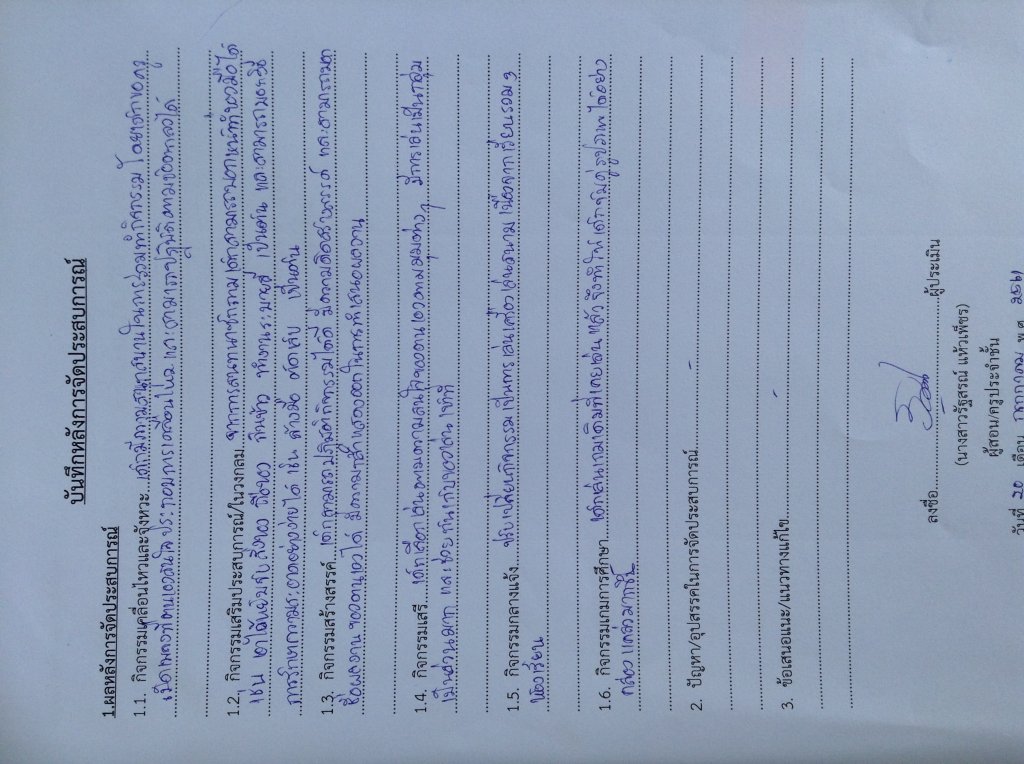 บันทึกหลังการจัดประสบการณ์
1.ผลหลังการจัดประสบการณ์
1.1. กิจกรรมเคลื่อนไหวและจังหวะ เด็กมีความสนุกสนานในการร่วมทำกิจกรรม โดย
เมื่อ ตนเองสนใจ ประกอบการเคลื่อนไหว และสามารถปฏิบัติตามข้อตกลงได้
1.2. กิจกรรมเสริมประสบการณ์/ในวงกลม จากการสนทนาซักถาม เด็กสามารถบอกหน้าที่ของมือได้
เช่น เอาไว้หยิบจับสิ่งของ ถือของ กินข้าว ระบายสี เป็นต้น และสามารถบอกวิธี
การรักษาความสะอาดอย่างง่ายได้ เช่น ล้างมือ ตัดเล็บ เป็นต้น
1.3. กิจกรรมสร้างสรรค์ เด็กสามารถปฏิบัติกิจกรรมได้ดี มีความคิดสร้างสรรค์ และสามารถบอก
ชื่อผลงานของตนเองได้ มีความกล้าแสดงออกในการนำเสนอผลงาน
1.4. กิจกรรมเสรี เด็กเลือกเล่นตามความสนใจของตนเองตามมุมต่างๆ มีการเล่นเป็นกลุ่ม
เป็นส่วนมาก และช่วยกันเก็บของเล่นเข้าที่
1.5. กิจกรรมกลางแจ้ง ปรับเปลี่ยนกิจกรรมเป็นการเล่นเครื่องเล่นสนาม เนื่องจากเรียนรวม 2
ห้องเรียน
1.6. กิจกรรมเกมการศึกษา เด็กเล่นเกมเดิมที่เคยเล่นแล้ว จึงทำให้เด็กจับคู่รูปภาพได้อย่าง
คล่องแคล่วมากขึ้น
2. ปัญหา/อุปสรรคในการจัดประสบการณ์
-
3. ข้อเสนอแนะ/แนวทางแก้ไข
-
ลงชื่อ ผู้ประเมิน
(นางสาวรัฐสรณ์ แห้วเพ็ชร)
ผู้สอน/ครูประจำชั้น
วันที่ 20 เดือน กรกฎาคม พ.ศ. 2561